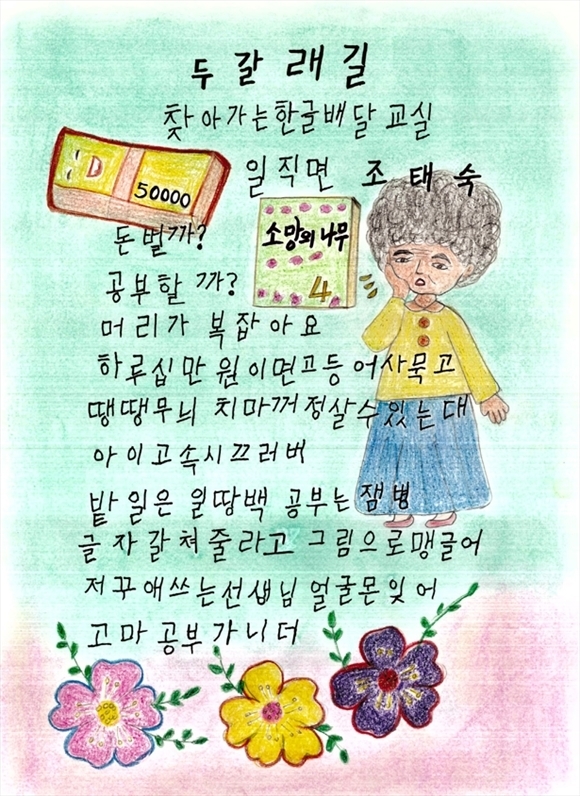 두 갈 래 길
찾아가는 한글배달교실
일직면 조태숙
50000
소망의 나무
4
돈벌까?
공부할까?
머리가 복잡아요
하루십만원이면고등어사묵고
땡땡무늬 치마꺼정살수있는대
아이고속시끄러버
밭일은 일땅백 공부는잼병
글자갈쳐줄라고 그림으로맹글어
저꾸애쓰는선생님얼굴몬잊어
고마공부가니더